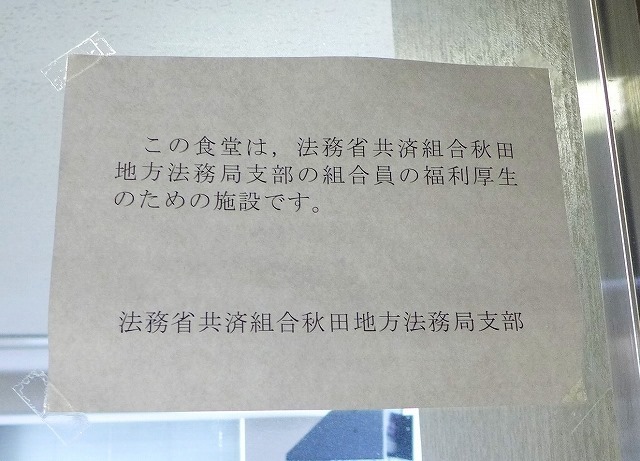 この食堂は，法務省共済組合秋田
地方法務局支部の組合員の福利厚生
のための施設です。
法務省共済組合秋田地方法務局支部